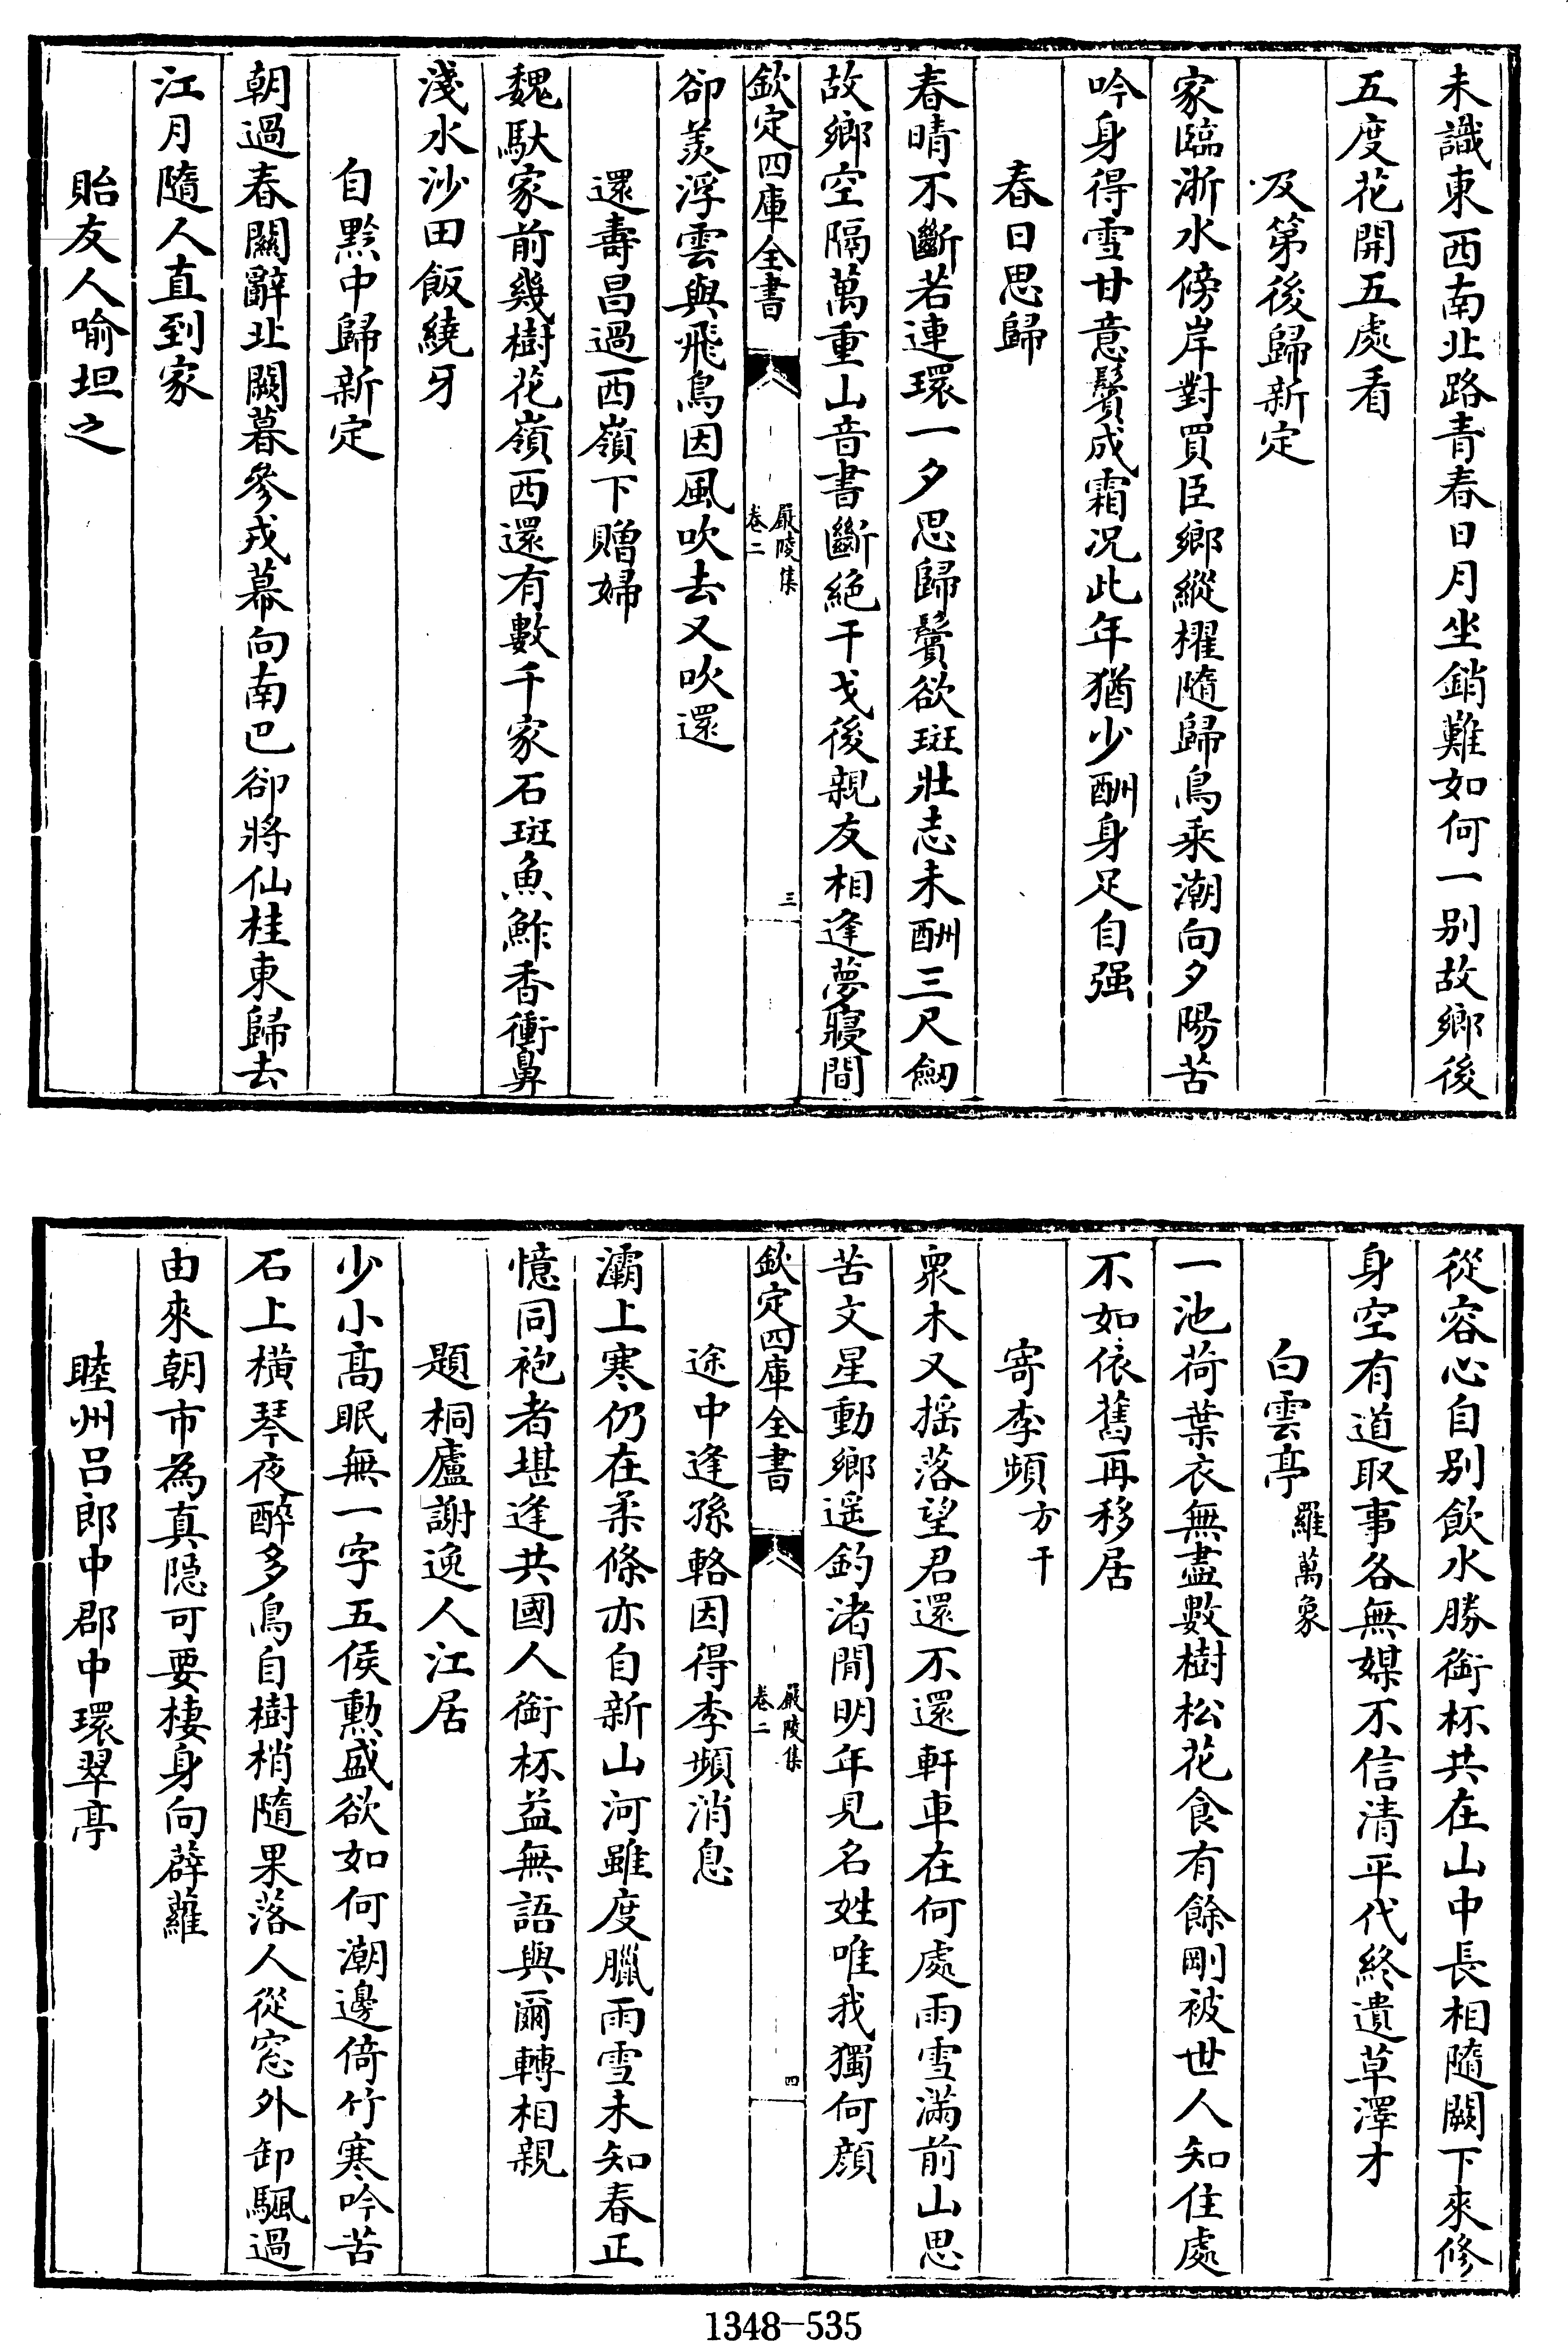 未識東西南北路青春日月坐銷難如何一別故鄉後
五度花開五處看
及第後歸新定
家臨浙水傍岸對買臣鄉縱櫂隨歸鳥乘潮向夕陽苦
吟身得雪甘意鬢成霜况此年猶少酬身足自强
春日思歸
春晴不斷若連環一夕思歸鬢欲斑壯志未酬三尺劒
故鄉空隔萬重山音書斷絕干戈後親友相逢夢寢間
欽定四庫全書
嚴陵集
卷二
三
卻羨浮雲與飛鳥因風吹去又吹還
還壽昌過西嶺下贈婦
魏馱家前幾樹花嶺西還有數千家石斑魚鮓香衝鼻
淺水沙田飯繞牙
自黔中歸新定
朝過春關辭北闕暮參戎幕向南巴卻將仙桂東歸去
江月隨人直到家
貽友人喻坦之
從容心自別飲水勝銜杯共在山中長相隨闕下來修
身空有道取事各無媒不信清平代終遺草澤才
白雲亭 羅萬象
一池荷葉衣無盡數樹松花食有餘剛被世人知住處
不如依舊再移居
寄李頻 方干
衆木又摇落望君還不還軒車在何處雨雪滿前山思
苦文星動鄉遥釣渚閒明年見名姓唯我獨何顔
欽定四庫全書
嚴陵集
卷二
四
途中逢孫輅因得李頻消息
灞上寒仍在柔條亦自新山河雖度臘雨雪未知春正
憶同袍者堪逢共國人銜杯益無語與爾轉相親
題桐廬謝逸人江居
少小高眠無一字五侯勲盛欲如何潮邊倚竹寒吟苦
石上橫琴夜醉多鳥自樹梢隨果落人從窓外卸颿過
由來朝市為真隱可要棲身向薜蘿
睦州吕郎中郡中環翠亭
1348-535